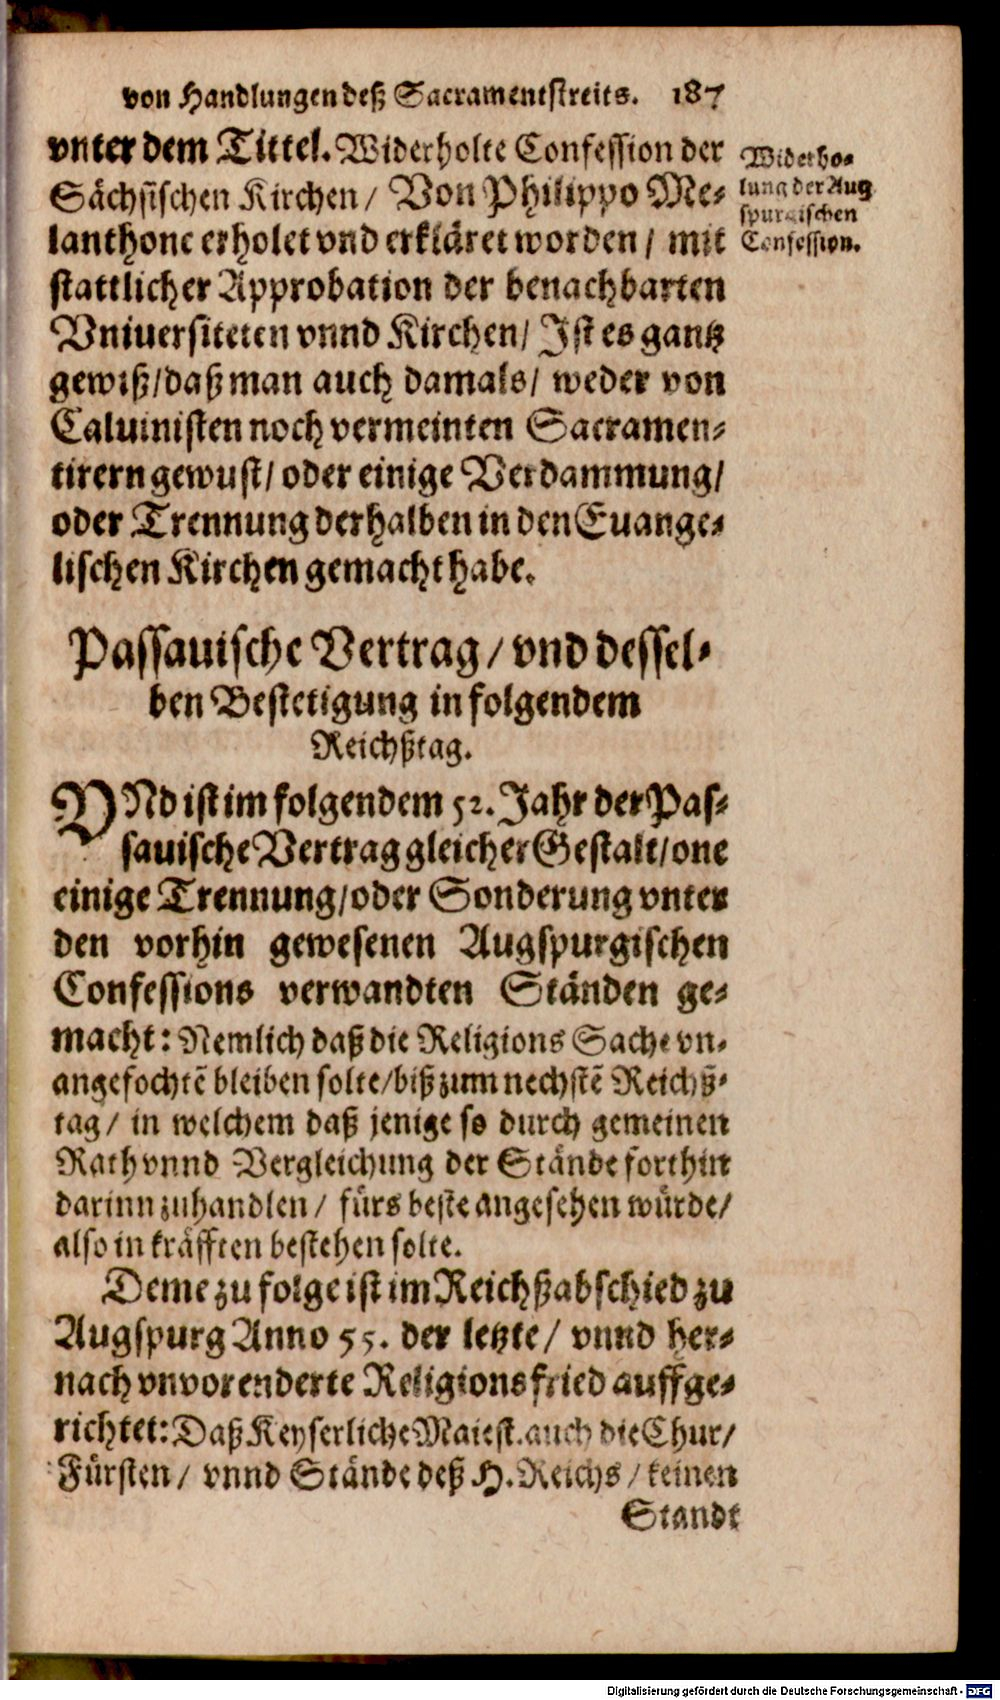 von Handlungen deß Sacramentstreits. 187
vnter dem Tittel. Widerholte Confession der
Sächsischen Kirchen / Von Philippo Me-
lanthone erholet vnd erkläret worden / mit
stattlicher Approbation der benachbarten
Vniuersiteten vnnd Kirchen / Ist es gantz
gewiß / daß man auch damals / weder von
Caluinisten noch vermeinten Sacramen-
tirern gewust / oder einige Verdammung /
oder Trennung derhalben in den Euange-
lischen Kirchen gemacht habe.
Widerho-
lung der Aug
spurgischen
Confession.
Passauische Vertrag / vnd dessel-
ben Bestetigung in folgendem
Reichßtag.
VNd ist im folgendem 52. Jahr der Pas-
sauische Vertrag gleicher Gestalt / one
einige Trennung / oder Sonderung vnter
den vorhin gewesenen Augspurgischen
Confessions verwandten Ständen ge-
macht: Nemlich daß die Religions Sache vn-
angefochtẽ bleiben solte / biß zum nechstẽ Reichß-
tag / in welchem daß jenige so durch gemeinen
Rath vnnd Vergleichung der Stände forthin
darinn zuhandlen / fürs beste angesehen würde /
also in kräfften bestehen solte.
Deme zu folge ist im Reichßabschied zu
Augspurg Anno 55. der letzte / vnnd her-
nach vnvorenderte Religions fried auffge-
richtet: Daß Keyserliche Maiest. auch die Chur /
Fürsten / vnnd Stände deß H. Reichs / keinen
Standt
Digitalisierung gefördert durch die Deutsche Forschungsgemeinschaft - DFG